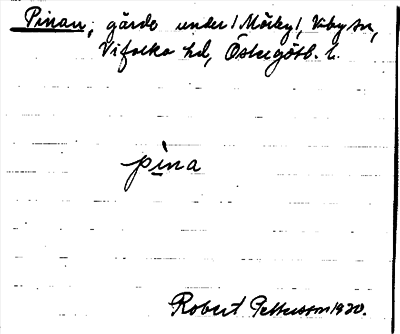 Pinan, gärde under / Mörby /, Viby sn,
Vifolka hd, Östergötl. l.
pina
Robert Pettersson 1920.